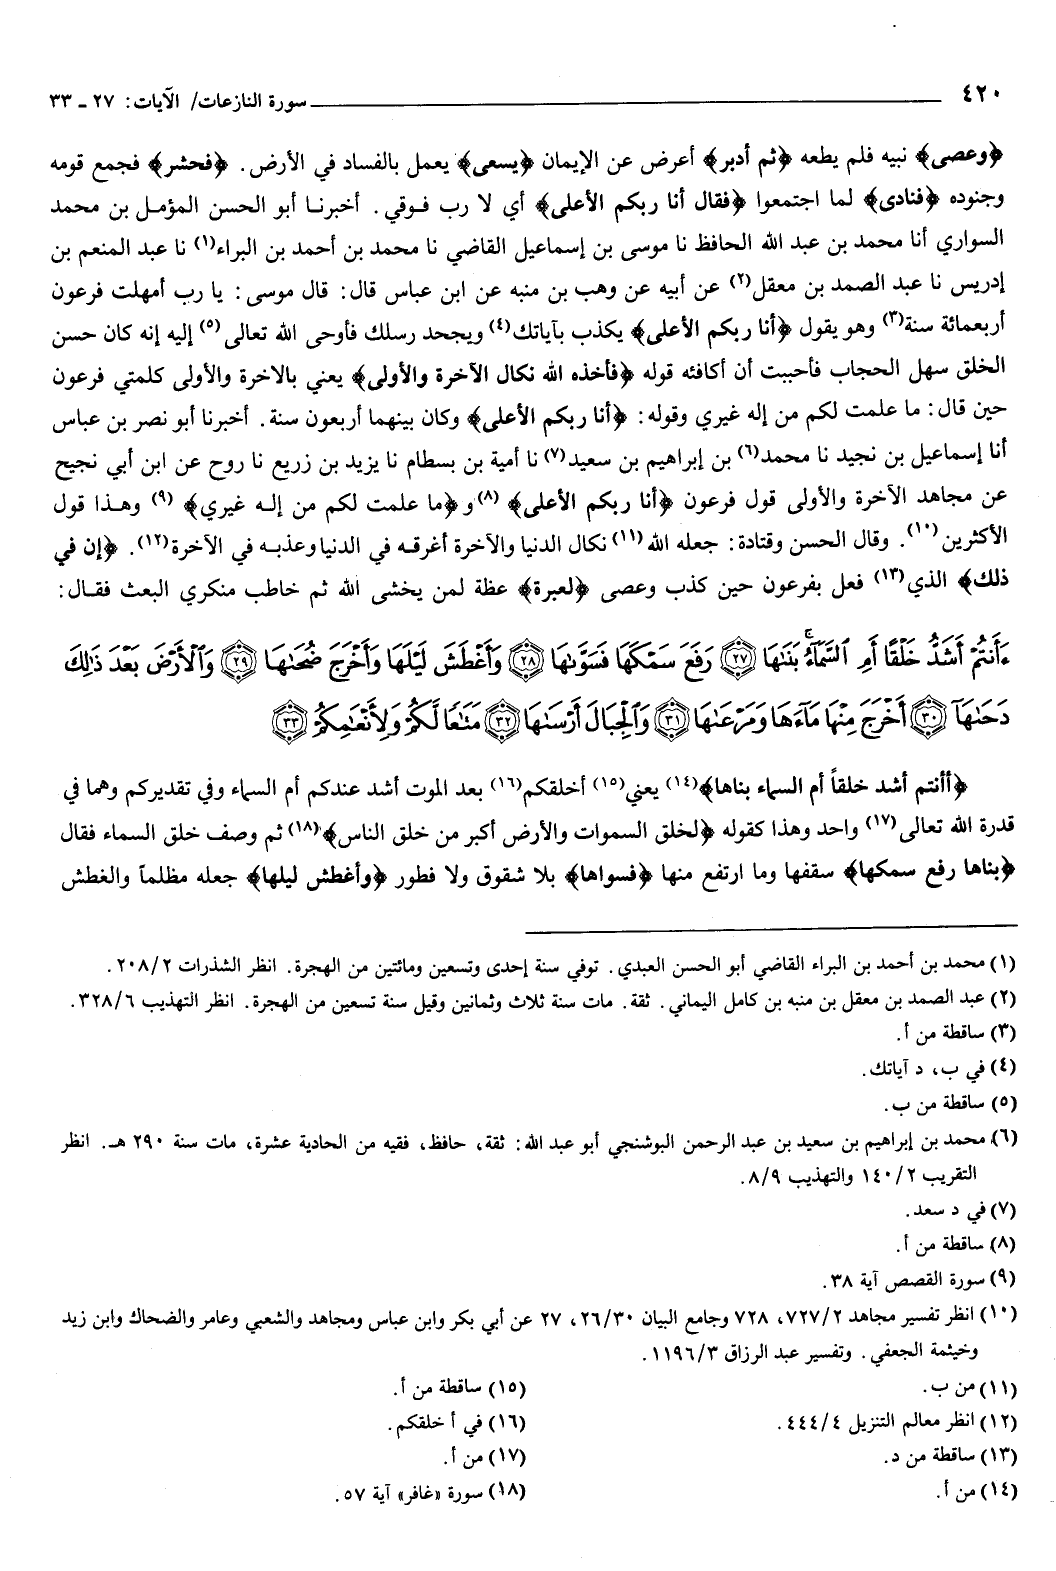 ٤٢٠ سورة النازعات/ الآيات: ٢٧ ـ ٣٣
﴿وعصى﴾ نبيه فلم يطعه ﴿ثم أدبر﴾ أعرض عن الإيمان ﴿يسعى﴾ يعمل بالفساد في الأرض. ﴿فحشر﴾ فجمع قومه
وجنوده ﴿فنادى﴾ لما اجتمعوا ﴿فقال أنا ربكم الأعلى﴾ أي لا رب فوقي. أخبرنا أبو الحسن المؤمل بن محمد
السواري أنا محمد بن عبد الله الحافظ نا موسى بن إسماعيل القاضي نا محمد بن أحمد بن البراء(١) نا عبد المنعم بن
إدريس نا عبد الصمد بن معقل(٢) عن أبيه عن وهب بن منبه عن ابن عباس قال: قال موسى: يا رب أمهلت فرعون
أربعمائة سنة(٣) وهو يقول ﴿أنا ربكم الأعلى﴾ يكذب بآياتك(٤) ويجحد رسلك فأوحى الله تعالى(٥) إليه إنه كان حسن
الخلق سهل الحجاب فأحببت أن أكافئه قوله ﴿فأخذه الله نكال الآخرة والأولى﴾ يعني بالاخرة والأولى كلمتي فرعون
حين قال: ما علمت لكم من إله غيري وقوله: ﴿أنا ربكم الأعلى﴾ وكان بينهما أربعون سنة. أخبرنا أبو نصر بن عباس
أنا إسماعيل بن نجيد نا محمد(٦) بن إبراهيم بن سعيد(٧) نا أمية بن بسطام نا يزيد بن زريع نا روح عن ابن أبي نجيح
عن مجاهد الآخرة والأولى قول فرعون ﴿أنا ربكم الأعلى﴾(٨) و﴿ما علمت لكم من إله غيري﴾(٩) وهذا قول
الأكثرين(١٠). وقال الحسن وقتادة: جعله الله(١١) نكال الدنيا والآخرة أغرقه في الدنيا وعذبه في الآخرة(١٢). ﴿إن في
ذلك﴾ الذي(١٣) فعل بفرعون حين كذب وعصى ﴿لعبرة﴾ عظة لمن يخشى الله ثم خاطب منكري البعث فقال:
ءَأَنتُمْ أَشَدُّ خَلْقًا أَمِ ٱلسَّمَآءُ بَنَىٰهَا ﴿٢٧﴾ رَفَعَ سَمْكَهَا فَسَوَّىٰهَا ﴿٢٨﴾ وَأَغْطَشَ لَيْلَهَا وَأَخْرَجَ ضُحَىٰهَا ﴿٢٩﴾ وَٱلْأَرْضَ بَعْدَ ذَٰلِكَ
دَحَىٰهَآ ﴿٣٠﴾ أَخْرَجَ مِنْهَا مَآءَهَا وَمَرْعَىٰهَا ﴿٣١﴾ وَٱلْجِبَالَ أَرْسَىٰهَا ﴿٣٢﴾ مَتَٰعًا لَّكُمْ وَلِأَنْعَٰمِكُمْ ﴿٣٣﴾
﴿أأنتم أشد خلقاً أم السماء بناها﴾(١٤) يعني(١٥) أخلقكم(١٦) بعد الموت أشد عندكم أم السماء وفي تقديركم وهما في
قدرة الله تعالى(١٧) واحد وهذا كقوله ﴿لخلق السموات والأرض أكبر من خلق الناس﴾(١٨) ثم وصف خلق السماء فقال
﴿بناها رفع سمكها﴾ سقفها وما ارتفع منها ﴿فسواها﴾ بلا شقوق ولا فطور ﴿وأغطش ليلها﴾ جعله مظلماً والغطش
(١) محمد بن أحمد بن البراء القاضي أبو الحسن العبدي. توفي سنة إحدى وتسعين ومائتين من الهجرة. انظر الشذرات ٢٠٨/٢.
(٢) عبد الصمد بن معقل بن منبه بن كامل اليماني. ثقة. مات سنة ثلاث وثمانين وقيل سنة تسعين من الهجرة. انظر التهذيب ٣٢٨/٦.
(٣) ساقطة من أ.
(٤) في ب، د آياتك.
(٥) ساقطة من ب.
(٦) محمد بن إبراهيم بن سعيد بن عبد الرحمن البوشنجي أبو عبد الله: ثقة، حافظ، فقيه من الحادية عشرة، مات سنة ٢٩٠ هـ. انظر
التقريب ١٤٠/٢ والتهذيب ٨/٩.
(٧) في د سعد.
(٨) ساقطة من أ.
(٩) سورة القصص آية ٣٨.
(١٠) انظر تفسير مجاهد ٧٢٧/٢، ٧٢٨ وجامع البيان ٢٦/٣٠، ٢٧ عن أبي بكر وابن عباس ومجاهد والشعبي وعامر والضحاك وابن زيد
وخيثمة الجعفي. وتفسير عبد الرزاق ١١٩٦/٣.
(١١) من ب.
(١٢) انظر معالم التنزيل ٤٤٤/٤.
(١٣) ساقطة من د.
(١٤) من أ.
(١٥) ساقطة من أ.
(١٦) في أ خلقكم.
(١٧) من أ.
(١٨) سورة «غافر» آية ٥٧.